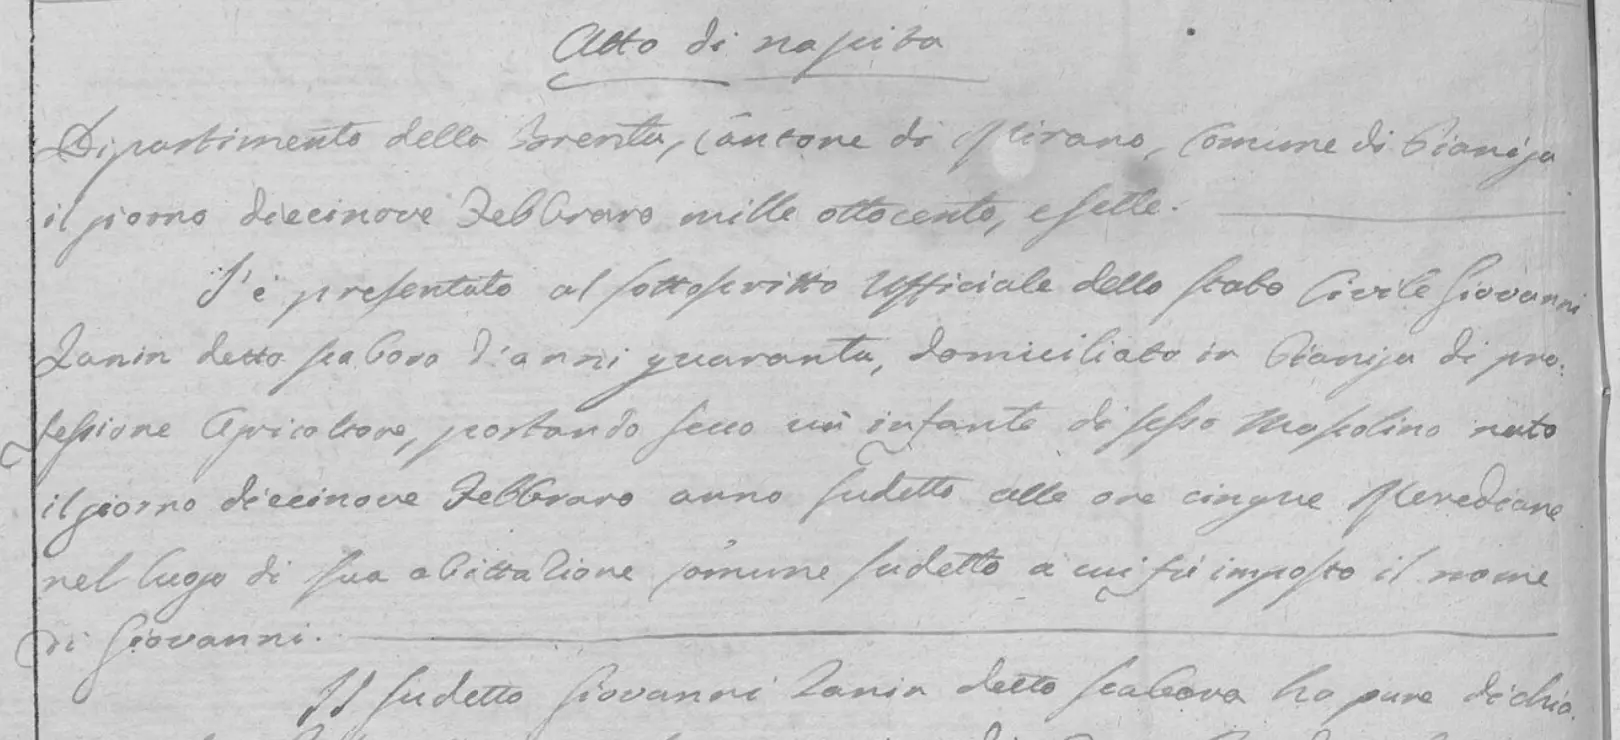 Atto di nascita
Dipartimento della Brenta, Cantone di Mirano, Comune di Pianiga
il giorno diecinove Febbraro mille ottocento, e sette.
S'è presentato al sottoscritto Ufficiale dello stato Civile Giovanni
Zanin detto scaboro d'anni quaranta, domiciliato in Pianiga di pro:
fessione Agricoltore, portando seco un infante di sesso Mascolino nato
il giorno diecinove Febbraro anno sudetto alle ore cinque Merediane
nel luogo di sua abittazione Comune sudetto a cui fù imposto il nome
di Giovanni.
Il sudetto Giovanni Zanin detto ha pure dichia: